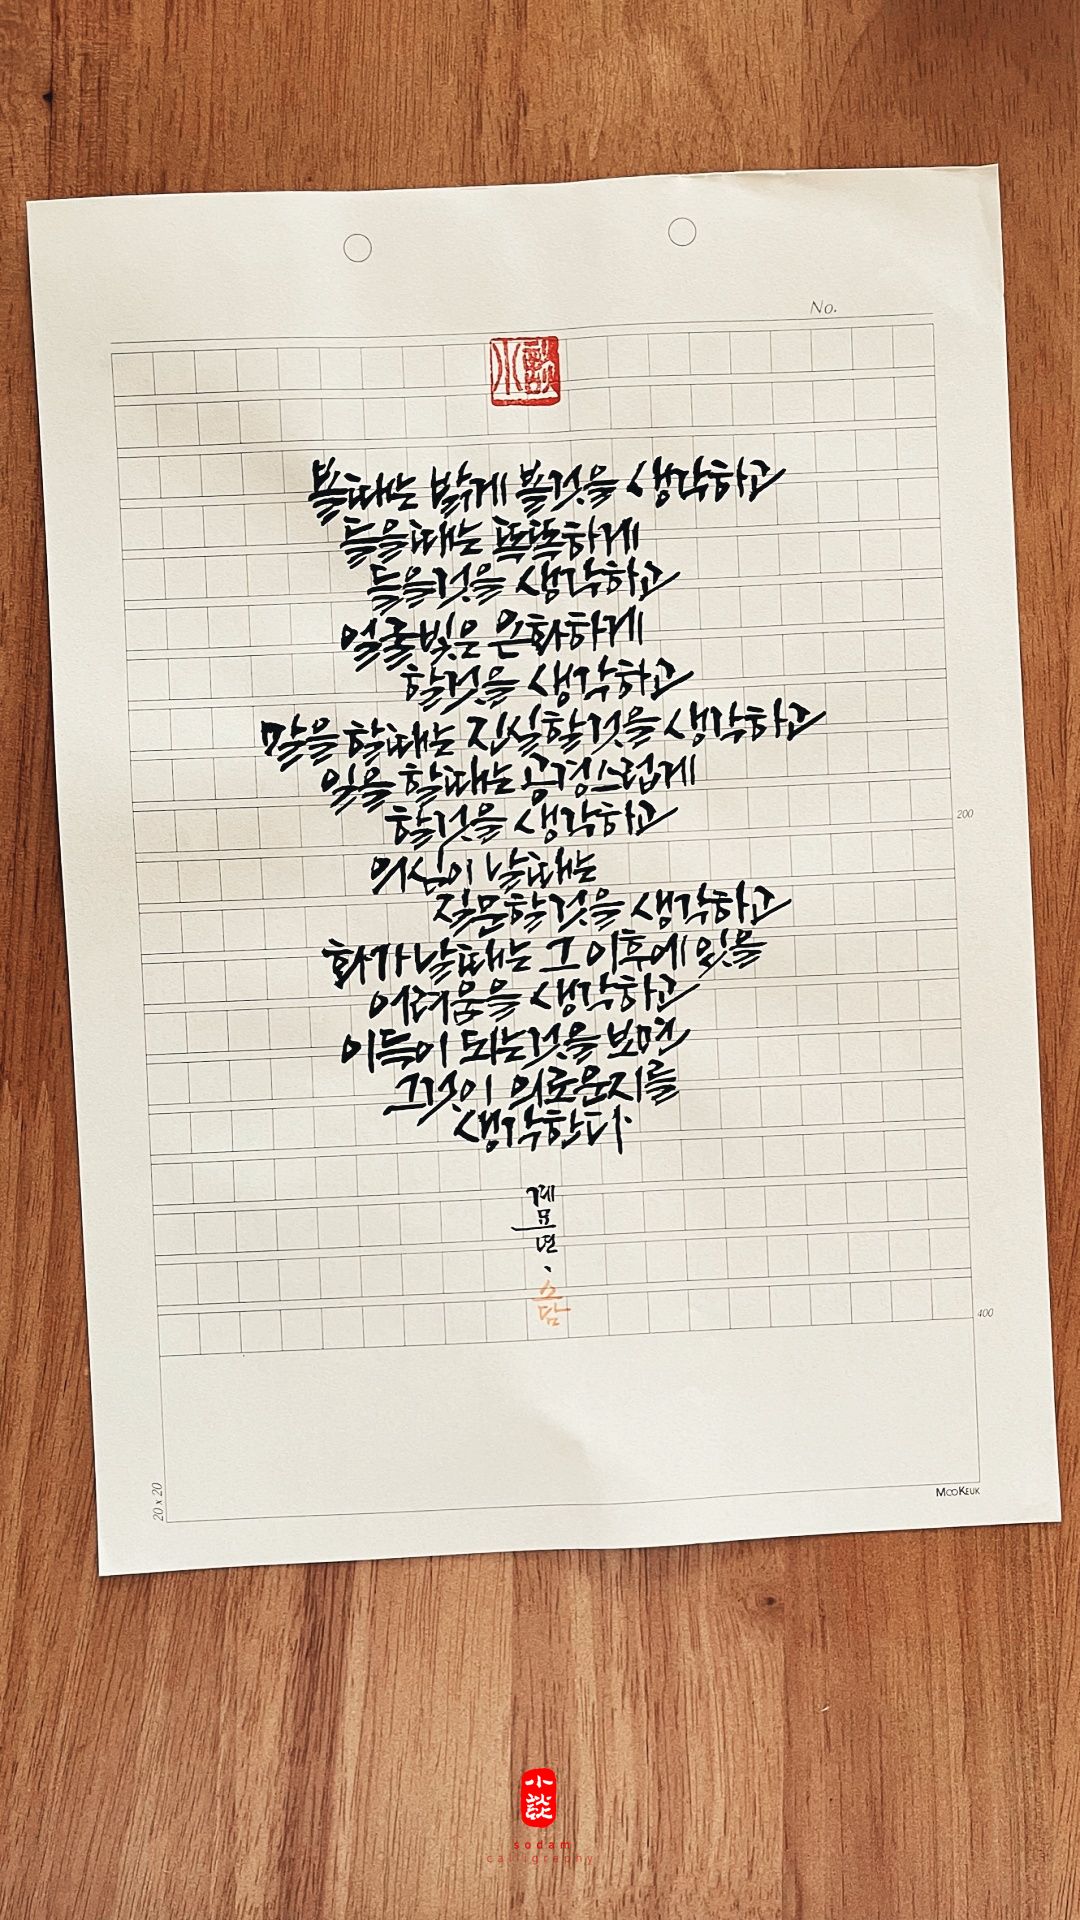 No.
小談
볼때는 밝게 볼것을 생각하고
들을때는 똑똑하게
들을것을 생각하고
얼굴빛은 온화하게
할것을 생각하고
말을 할때는 진실할것을 생각하고
일을 할때는 공경스럽게
할것을 생각하고
200
의심이 날때는
질문할것을 생각하고
화가 날때는 그 이후에 있을
어려움을 생각하고
이득이 되는것을 보면
그것이 의로운지를
생각한다.
계묘년、
소담
400
20 x 20
MOOKEUK
小談
sodam
calligraphy